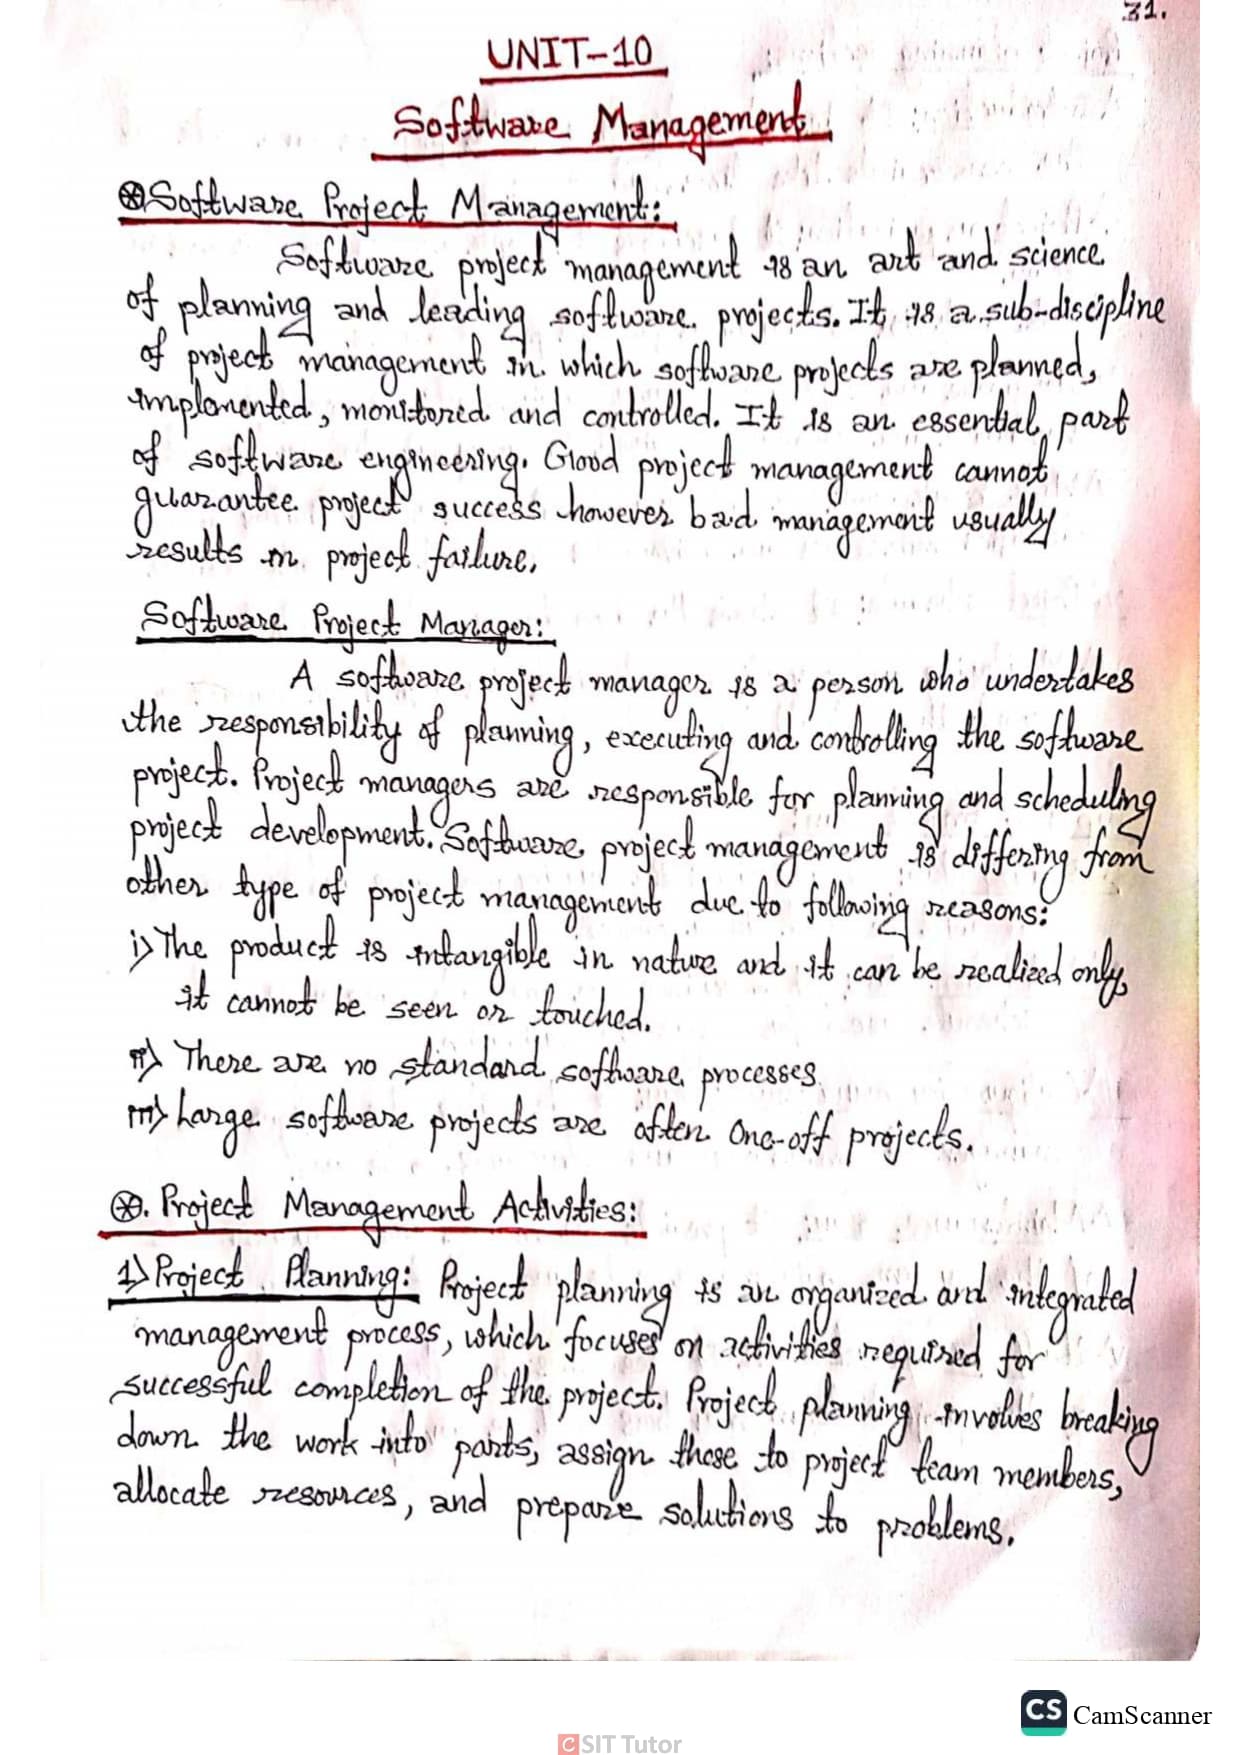 31.
UNIT-10
Software Management
⊛Software Project Management:
Software project management is an art and science
of planning and leading software projects. It is a sub-discipline
of project management in which software projects are planned,
implemented, monitored and controlled. It is an essential part
of software engineering. Good project management cannot
guarantee project success however bad management usually
results in project failure.
Software Project Manager:
A software project manager is a person who undertakes
the responsibility of planning, executing and controlling the software
project. Project managers are responsible for planning and scheduling
project development. Software project management is differing from
other type of project management due to following reasons:
i) The product is intangible in nature and it can be realized only,
it cannot be seen or touched.
ii) There are no standard software processes
iii) Large software projects are often One-off projects.
⊛. Project Management Activities:
1) Project Planning: Project planning is an organized and integrated
management process, which focuses on activities required for
successful completion of the project. Project planning involves breaking
down the work into parts, assign those to project team members,
allocate resources, and prepare solutions to problems.
CS CamScanner
CSIT Tutor